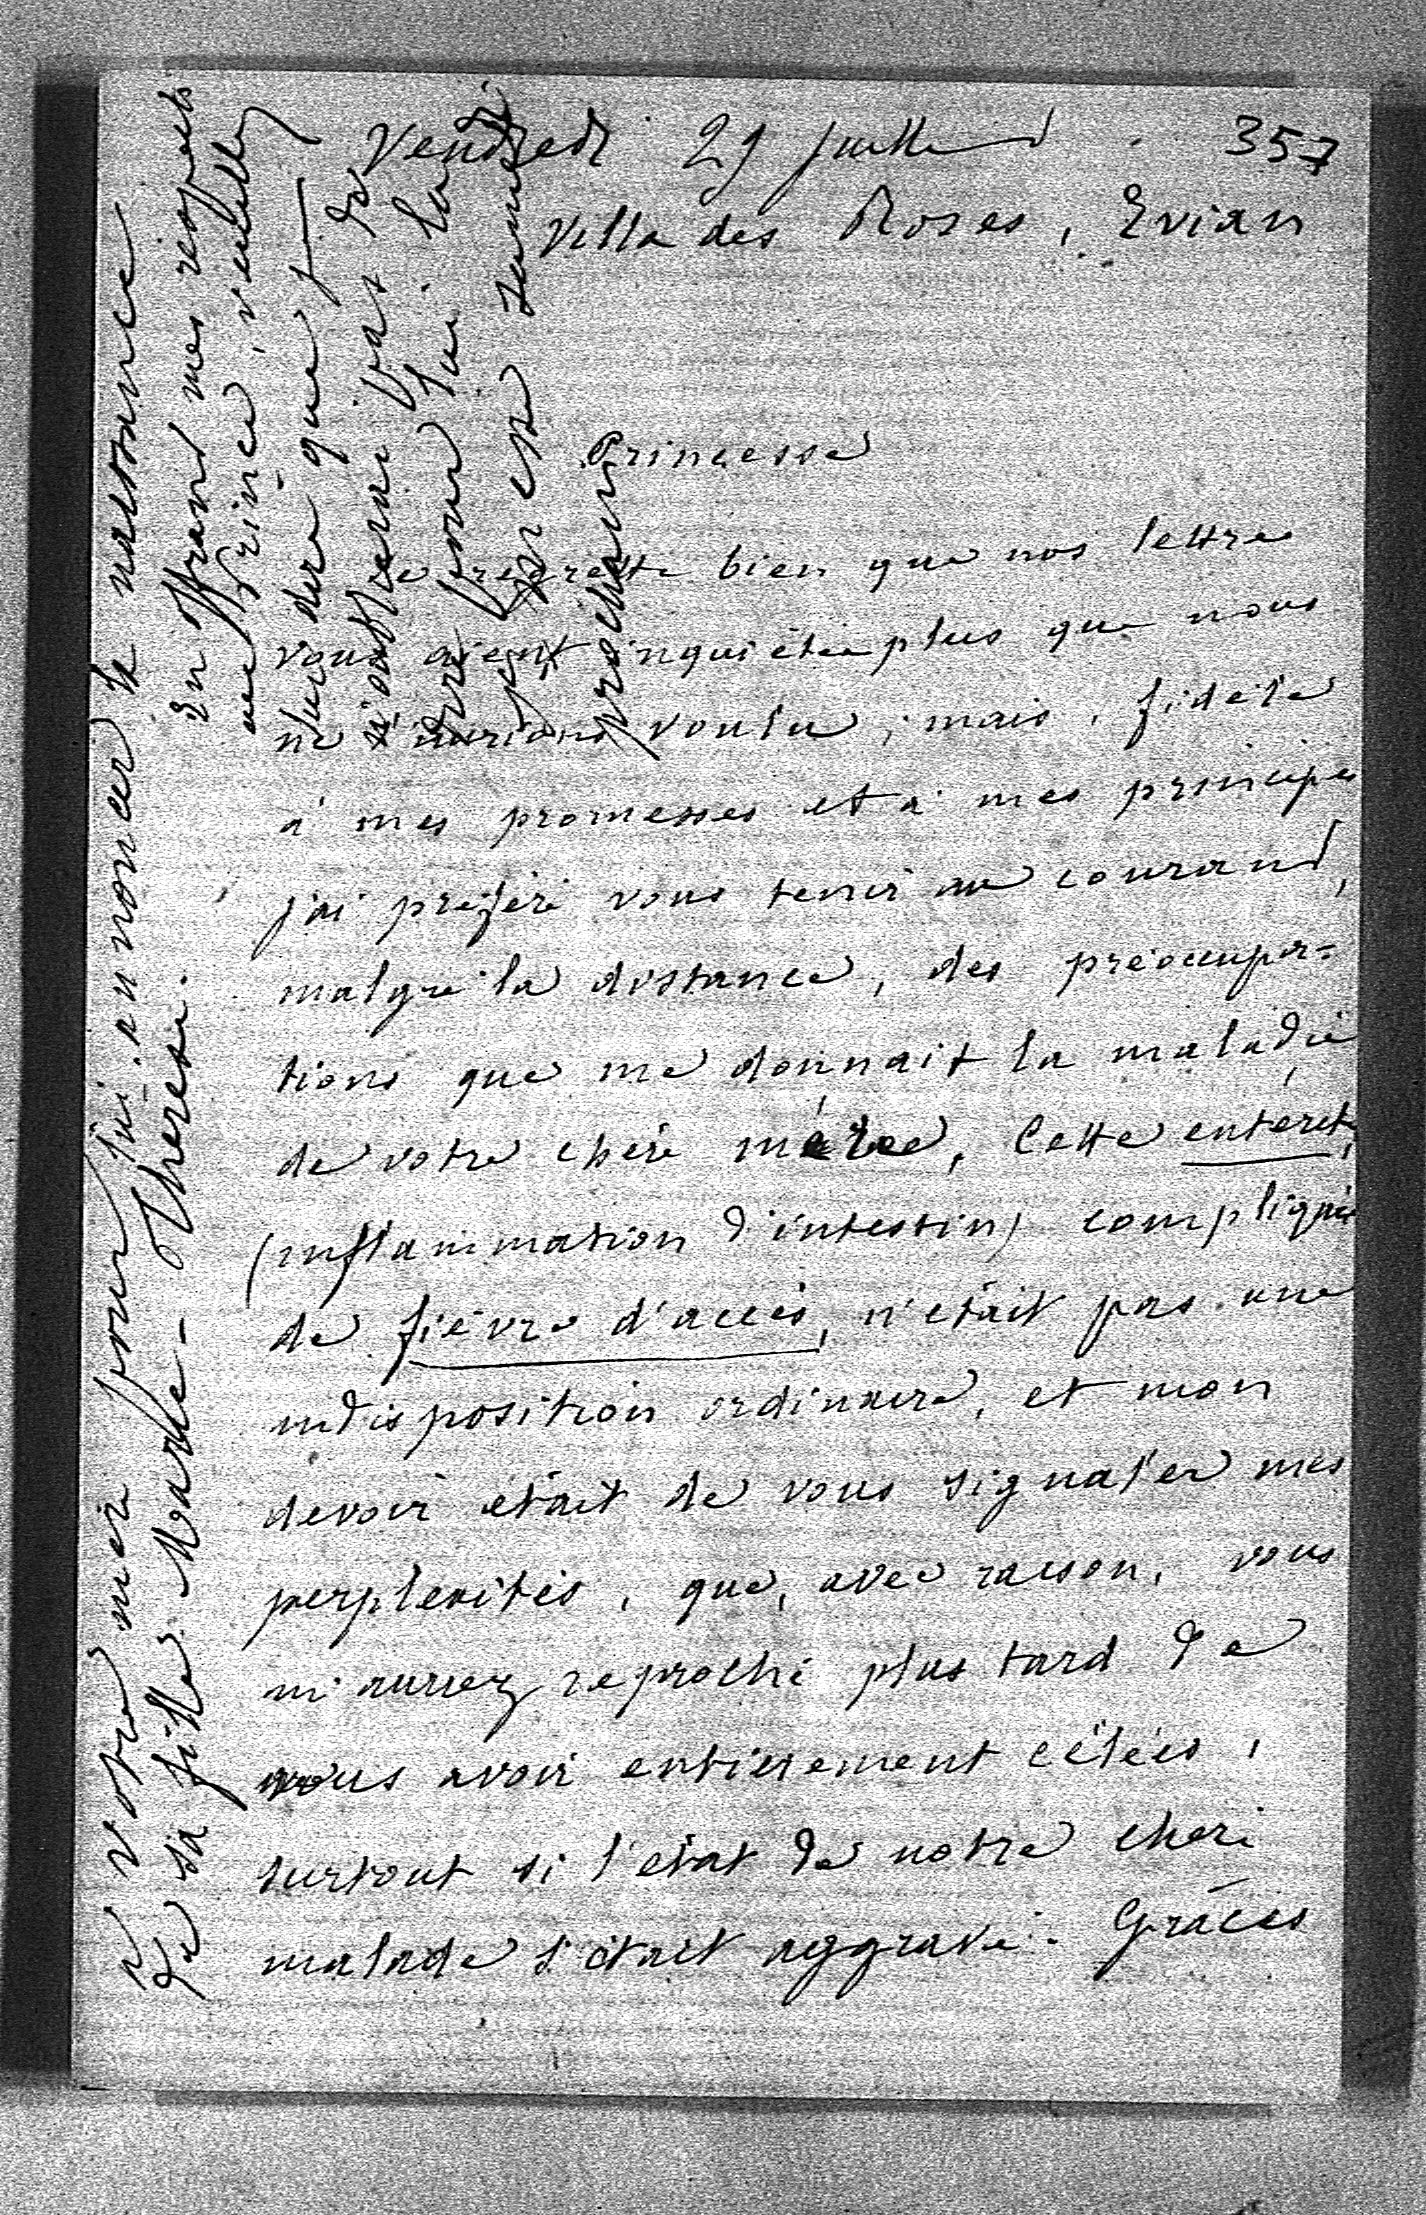 357
Vendredi 29 juillet
Villa des Roses, Evian
Princesse
Je regrette bien que nos lettres
vous aient inquiétée plus que nous
ne l'aurions voulu, mais, fidèle
à mes promesses et à mes principes
j'ai préféré vous tenir au courant,
malgré la distance, des préoccupa=
tions que me donnait la maladie
de votre chère mère. Cette enterite,
(inflammation d'intestin) compliquée
de fièvre d'accès, n'était pas une
indisposition ordinaire, et mon
devoir était de vous signaler mes
perplexités, que, avec raison, vous
m'auriez reproché plus tard de
vous avoir entièrement célées,
surtout si l'état de notre chère
malade s'était aggravé. Grâces
à votre mère pour lui annoncer la naissance
de sa fille Marie-Thérèse.
En offrant mes respects
au Prince, veuillez
lui dire que je
n'oublierai pas de
pour lui la
samedi
prochain